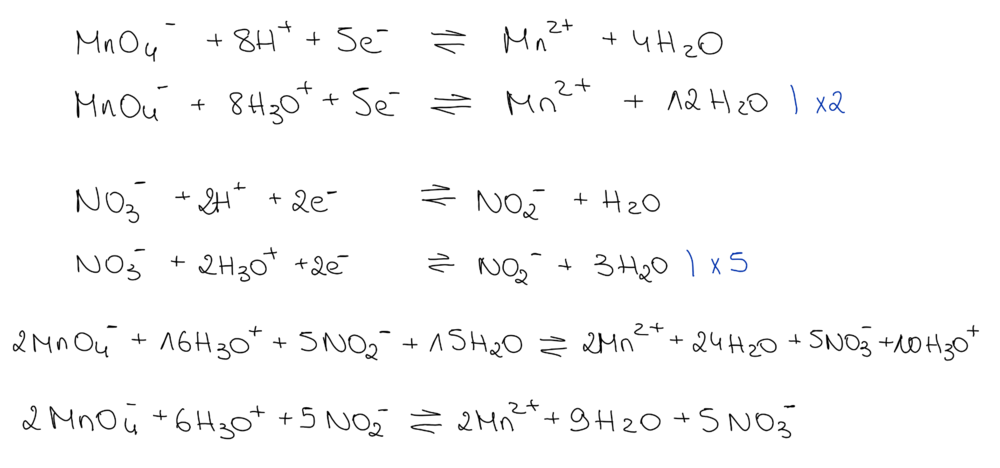 MnO₄⁻ + 8H⁺ + 5e⁻ ⇌ Mn²⁺ + 4H₂O
MnO₄⁻ + 8H₃O⁺ + 5e⁻ ⇌ Mn²⁺ + 12H₂O | x2
NO₃⁻ + 2H⁺ + 2e⁻ ⇌ NO₂⁻ + H₂O
NO₃⁻ + 2H₃O⁺ + 2e⁻ ⇌ NO₂⁻ + 3H₂O | x5
2MnO₄⁻ + 16H₃O⁺ + 5NO₂⁻ + 15H₂O ⇌ 2Mn²⁺ + 24H₂O + 5NO₃⁻ + 10H₃O⁺
2MnO₄⁻ + 6H₃O⁺ + 5NO₂⁻ ⇌ 2Mn²⁺ + 9H₂O + 5NO₃⁻